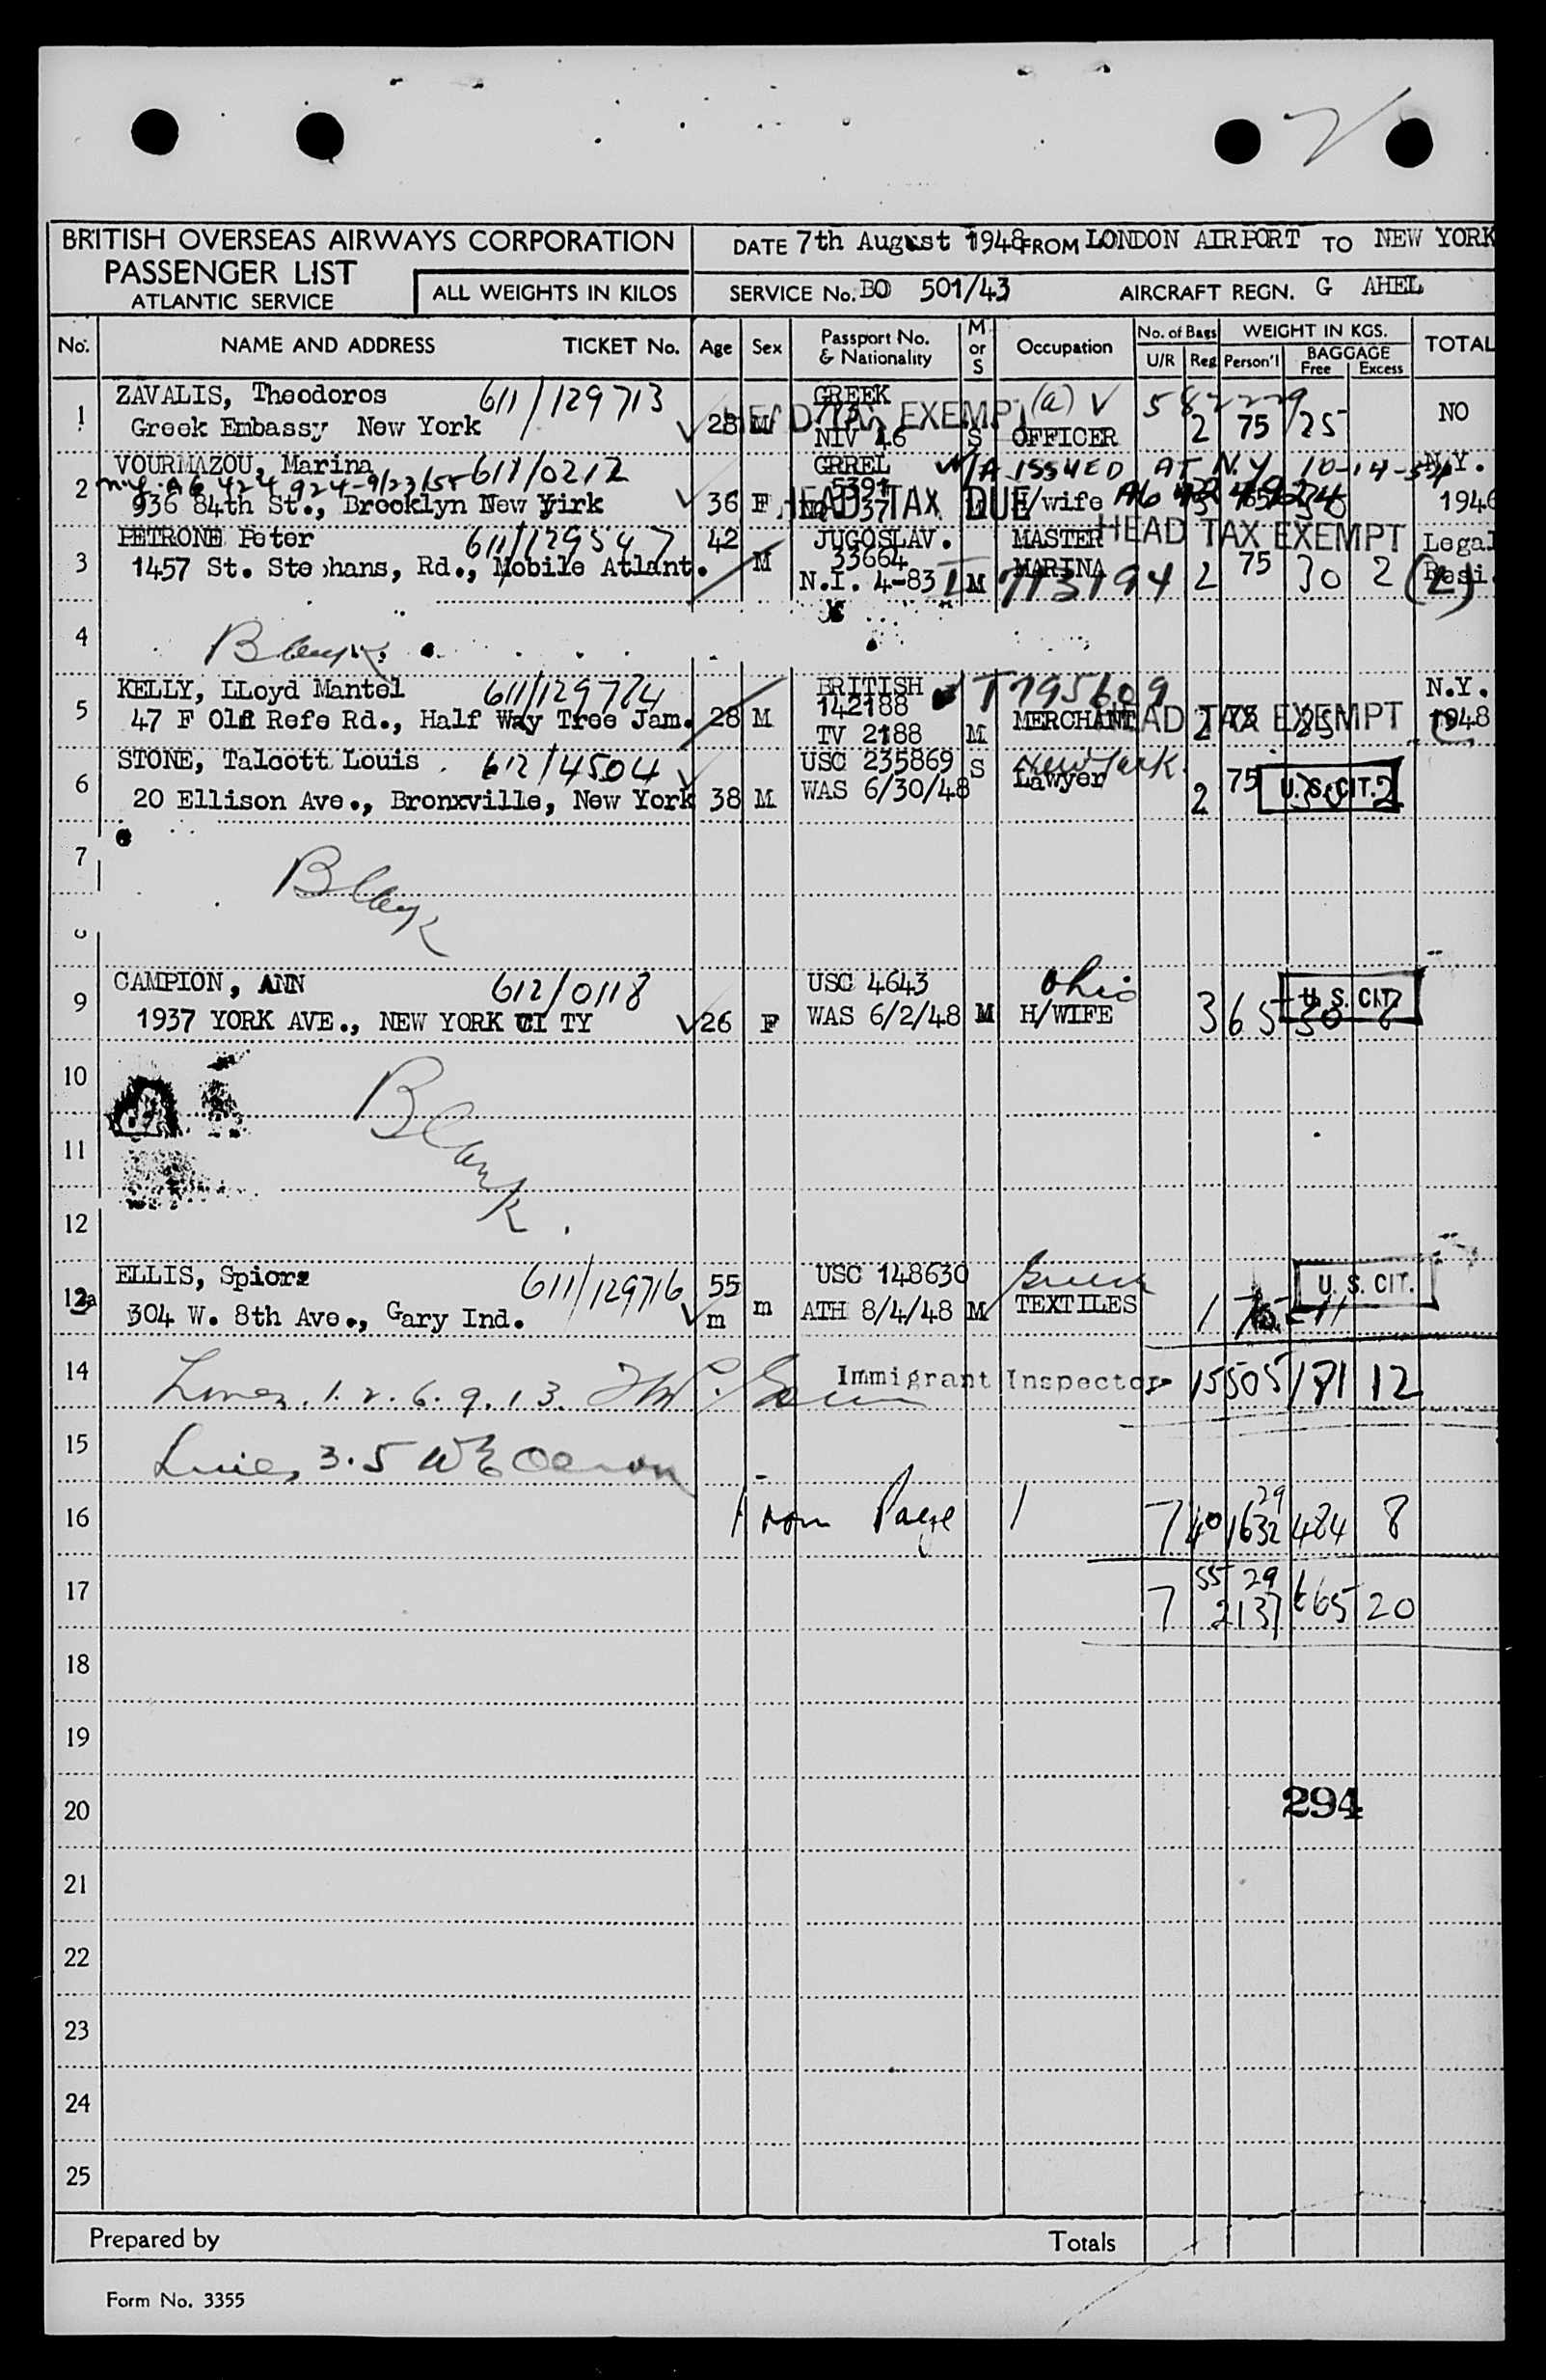 BRITISH OVERSEAS AIRWAYS CORPORATION
PASSENGER LIST
ATLANTIC SERVICE
ALL WEIGHTS IN KILOS
DATE 7th August 1948 FROM LONDON AIRPORT TO NEW YORK
SERVICE No. BO 501/43 AIRCRAFT REGN. G AHEL
No. NAME AND ADDRESS TICKET No. Age Sex Passport No. & Nationality M or S Occupation No. of Bags U/R Reg WEIGHT IN KGS. Person'l BAGGAGE Free Excess TOTAL
1 ZAVALIS, Theodoros 611/129713 GREEK (a) V 582229
Greek Embassy New York 28 M NIV 46 S OFFICER 2 75 25 NO
HEAD TAX EXEMPT
2 VOURMAZOU, Marina 611/0212 GRREL W/A ISSUED AT N.Y. 10-14-54 N.Y.
N.Y. A6 424 924-9/23/55 5391
936 84th St., Brooklyn New Yirk 36 F /wife 1946
HEAD TAX DUE
3 PETRONE Peter 611/129547 42 JUGOSLAV. MASTER Legal
HEAD TAX EXEMPT
1457 St. Stephans, Rd., Mobile Atlant. M 33664 MARINA 75 Resi.
N.I. 4-83 I M 713194 2 30 2 (2)
4 Blank
5 KELLY, LLoyd Mantel 611/129774 BRITISH T795609 N.Y.
142188
47 F Old Refe Rd., Half Way Tree Jam. 28 M TV 2188 M MERCHANT 2 1948
HEAD TAX EXEMPT
6 STONE, Talcott Louis 612/4504 USC 235869 S New York
20 Ellison Ave., Bronxville, New York 38 M WAS 6/30/48 Lawyer 2 75 U.S. CIT. 2
7 Blank
9 CAMPION, ANN 612/0118 USC 4643 Ohio
1937 YORK AVE., NEW YORK CI TY 26 F WAS 6/2/48 M H/WIFE 3 65 30 U. S. CIT.
10
Blank
11
12
ELLIS, Spiors 611/129716 55 USC 148630 Greece U. S. CIT.
304 W. 8th Ave., Gary Ind. m m ATH 8/4/48 M TEXTILES 1 75 11
14 Lines. 1. 2. 6. 9. 13. Immigrant Inspector 15 505 181 12
15 Lines 3. 5
16 From Page 1 7 40 29 1632 484 8
17 7 55 29 2137 665 20
18
19
20 294
21
22
23
24
25
Prepared by Totals
Form No. 3355